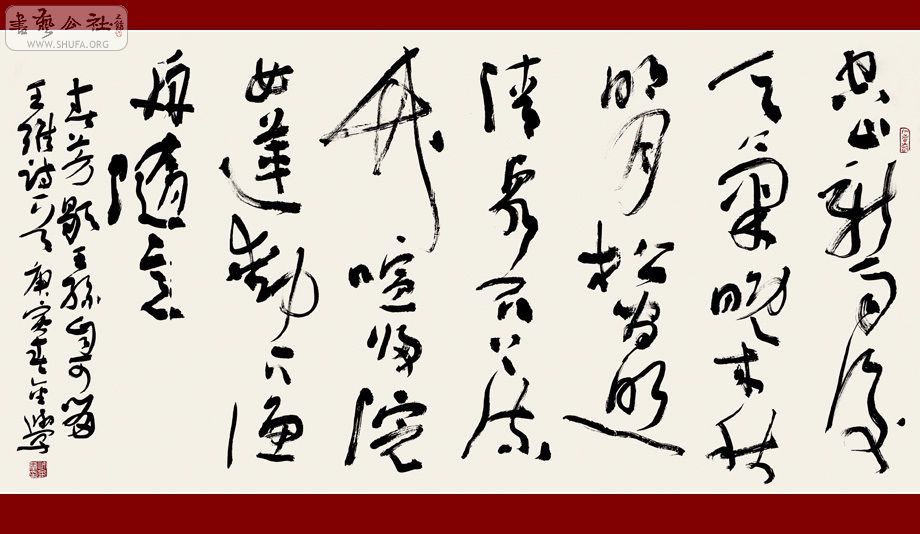 書藝公社
WWW.SHUFA.ORG
空山新雨後
天氣晚来秋
明月松間照
清泉石上流
竹喧歸浣
女蓮動下漁
舟隨意
春芳歇王孫自可留
王維詩一首庚寅春